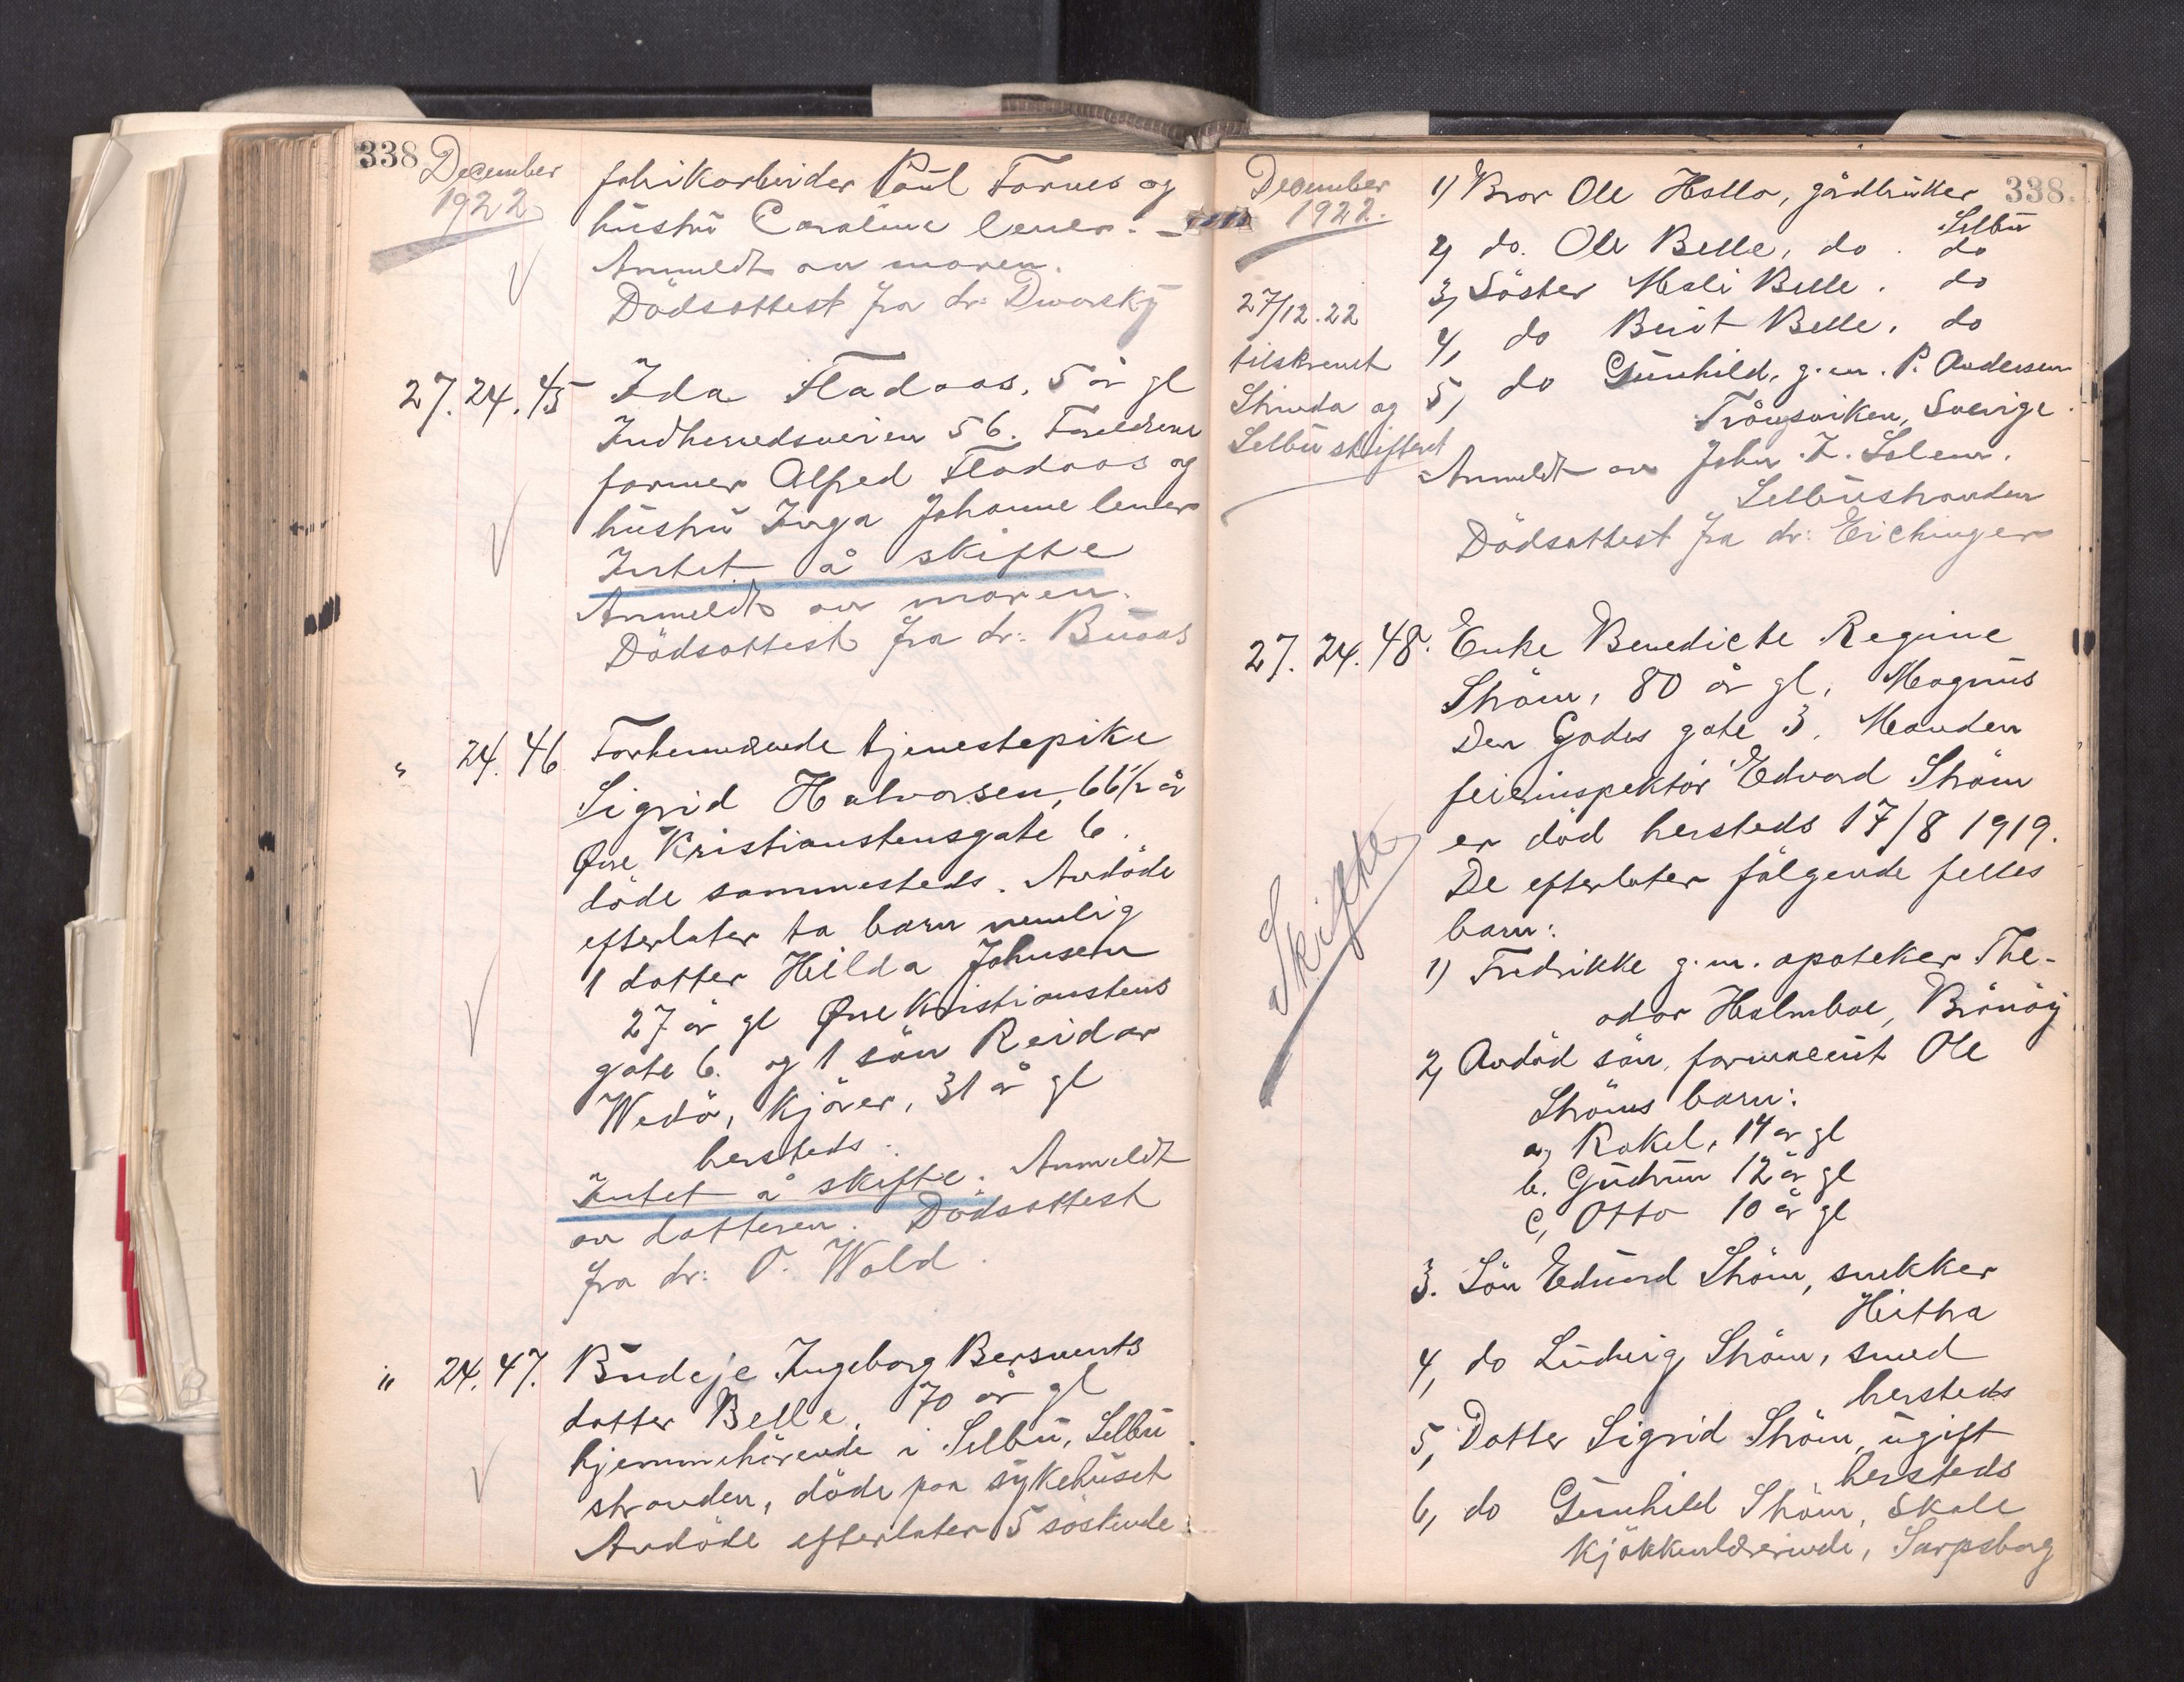 338
December
1922
fabrikarbeider Paul Fornes og
hustru Caroline lever.
Anmeldt av moren.
Dödsattest fra dr: Dworsky
27. 24. 45 Ida Fladaas, 5 år gl
Indherredsveien 56. Foreldrene
former Alfred Fladaas og
hustru Inga Johanne lever
Intet å skifte
Anmeldt av moren.
Dödsattest fra dr: Buaas
" 24. 46 Forhenværende tjenestepike
Sigrid Halvorsen, 66½ år
Øvre Kristianstensgate 6.
döde sammesteds. Avdöde
efterlater to barn nemlig
1 datter Hilda Johnsen
27 år gl Øvre Kristianstens
gate 6. og 1 sön Reidar
Wedö, kjörer, 31 år gl
hersteds.
Intet å skifte. Anmeldt
av datteren. Dödsattest
fra dr: O. Wold.
" 24. 47. Budeje Ingeborg Bersvents
datter Belle, 70 år gl
hjemmehörende i Selbu, Selbu
stranden, döde paa sykehuset
Avdöde efterlater 5 söskende:
338.
December
1922.
1) Bror Ole Halla, gårdbruker
Selbu
2) do. Ole Belle, do. do
3) Söster Mali Belle. do
4) do Berit Belle, do
5) do Gunhild, g.m. P. Andersen
Trångsviken, Sverige.
27/12.22
tilskrevet
Strinda og
Selbu skifteret
Anmeldt av John . Solem.
Selbustranden
Dödsattest fra dr: Eichinger
27. 24. 48. Enke Benedicte Regine
Ström, 80 år gl, Magnus
Den Godes gate 3. Manden
feierinspektör Edvard Ström
er död hersteds 17/8 1919.
De efterlater fölgende felles
barn:
Skifte
1) Fredrikke g.m. apoteker The-
odor Holmboe, Brönöy
2) Avdöd sön, farmaceut Ole
Ströms barn:
a) Rakel, 14 år gl
b. Gudrun 12 år gl
c, Otto 10 år gl
3. Sön Edvard Ström, snekker
Heitra
4, do Ludvig Ström, smed
hersteds
5, Datter Sigrid Ström, ugift
hersteds
6, do Gunhild Ström, skole
kjökkenlærerinde, Sarpsborg